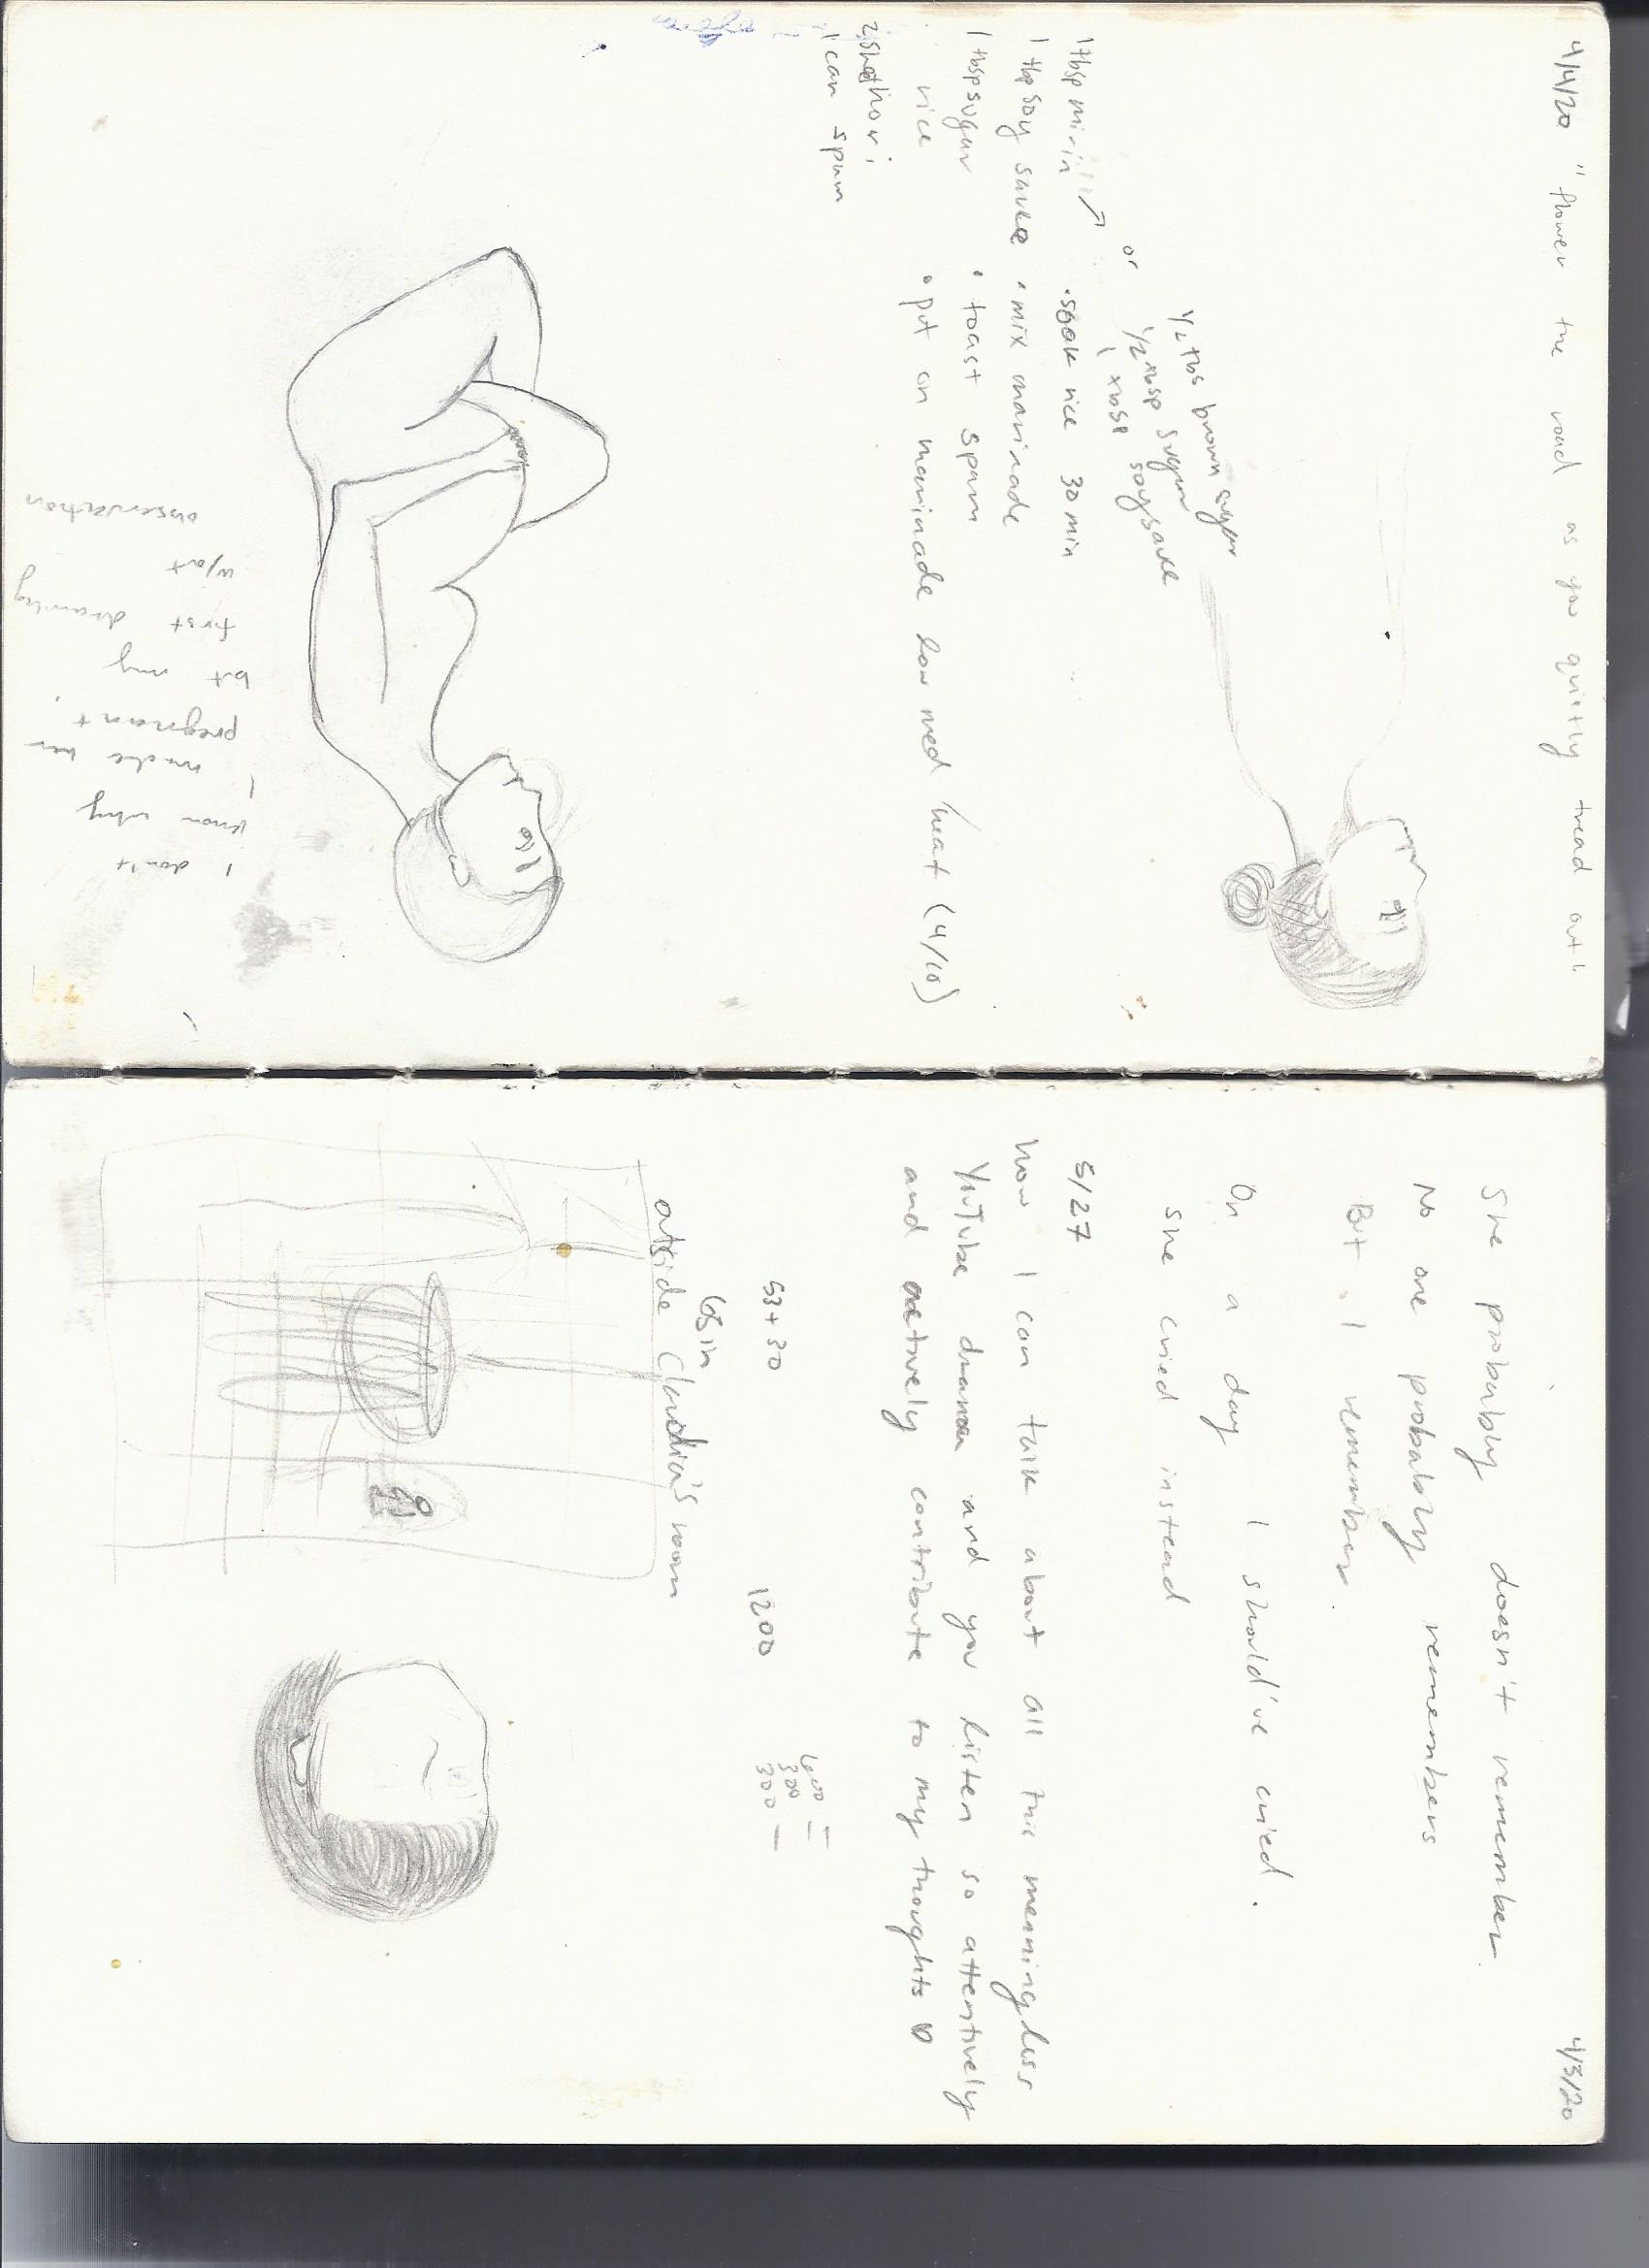 4/4/20 "flower the road as you quietly tread out"
1/2 tbs brown sugar
1/2 tbsp sugar
1 tbsp soy sauce
or
1 tbsp mirin
• soak rice 30 min
1 tbsp soy sauce
• mix marinade
1 tbsp sugar
• toast spam
rice
• put on marinade low med heat (4/10)
1 can spam
I don't
know why
I made her
pregnant,
but my
first drawing
w/out
observation
4/3/20
She probably doesn't remember
No one probably remembers
But I remember.
On a day I should've cried.
She cried instead
5/27
how I can talk about all this meaningless
YouTube drama and you listen so attentively
and actively contribute to my thoughts
53+30
1200
600
300
300
outside Claudia's room